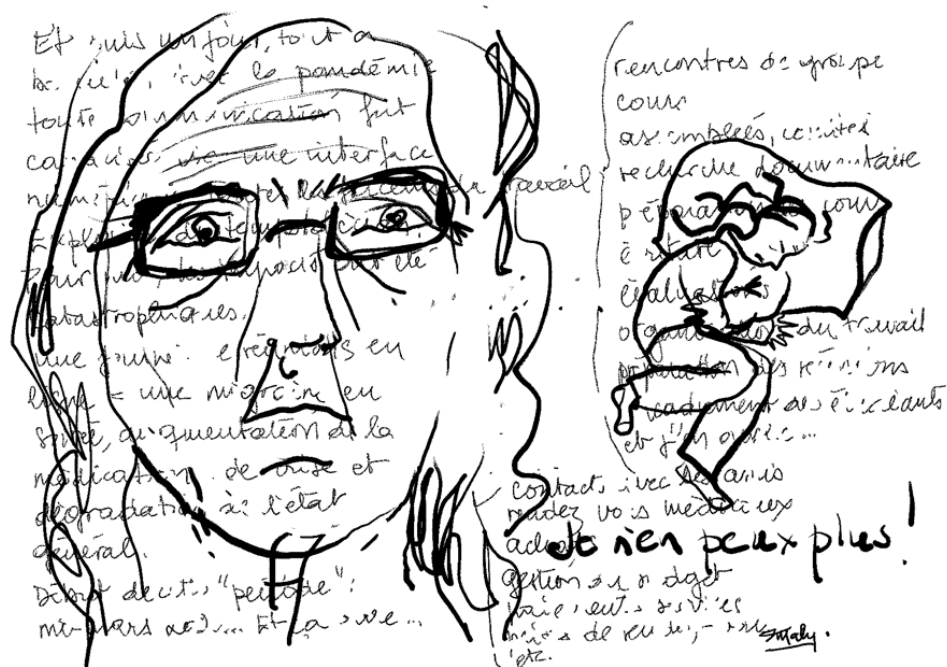 Et puis un jour, tout a
basculé, avec la pandémie
toute communication fut
via une interface
numérique toutes les du travail
temps
Pour moi, les impacts ont été
catastrophiques.
une journée réunions en
ligne = une migraine en
soirée, augmentation de la
médication de crise et
dégradation de l'état
général.
Début de cette "période":
mi-mars Et ça
rencontres de groupe
cours
assemblées, comités
recherche documentaire
préparation cours
évaluations
organisation du travail
préparation des réunions
encadrement des étudiants
et j'en
contacts avec des amis
rendez vous médicaux
gestion du budget
etc.
Je n'en peux plus!